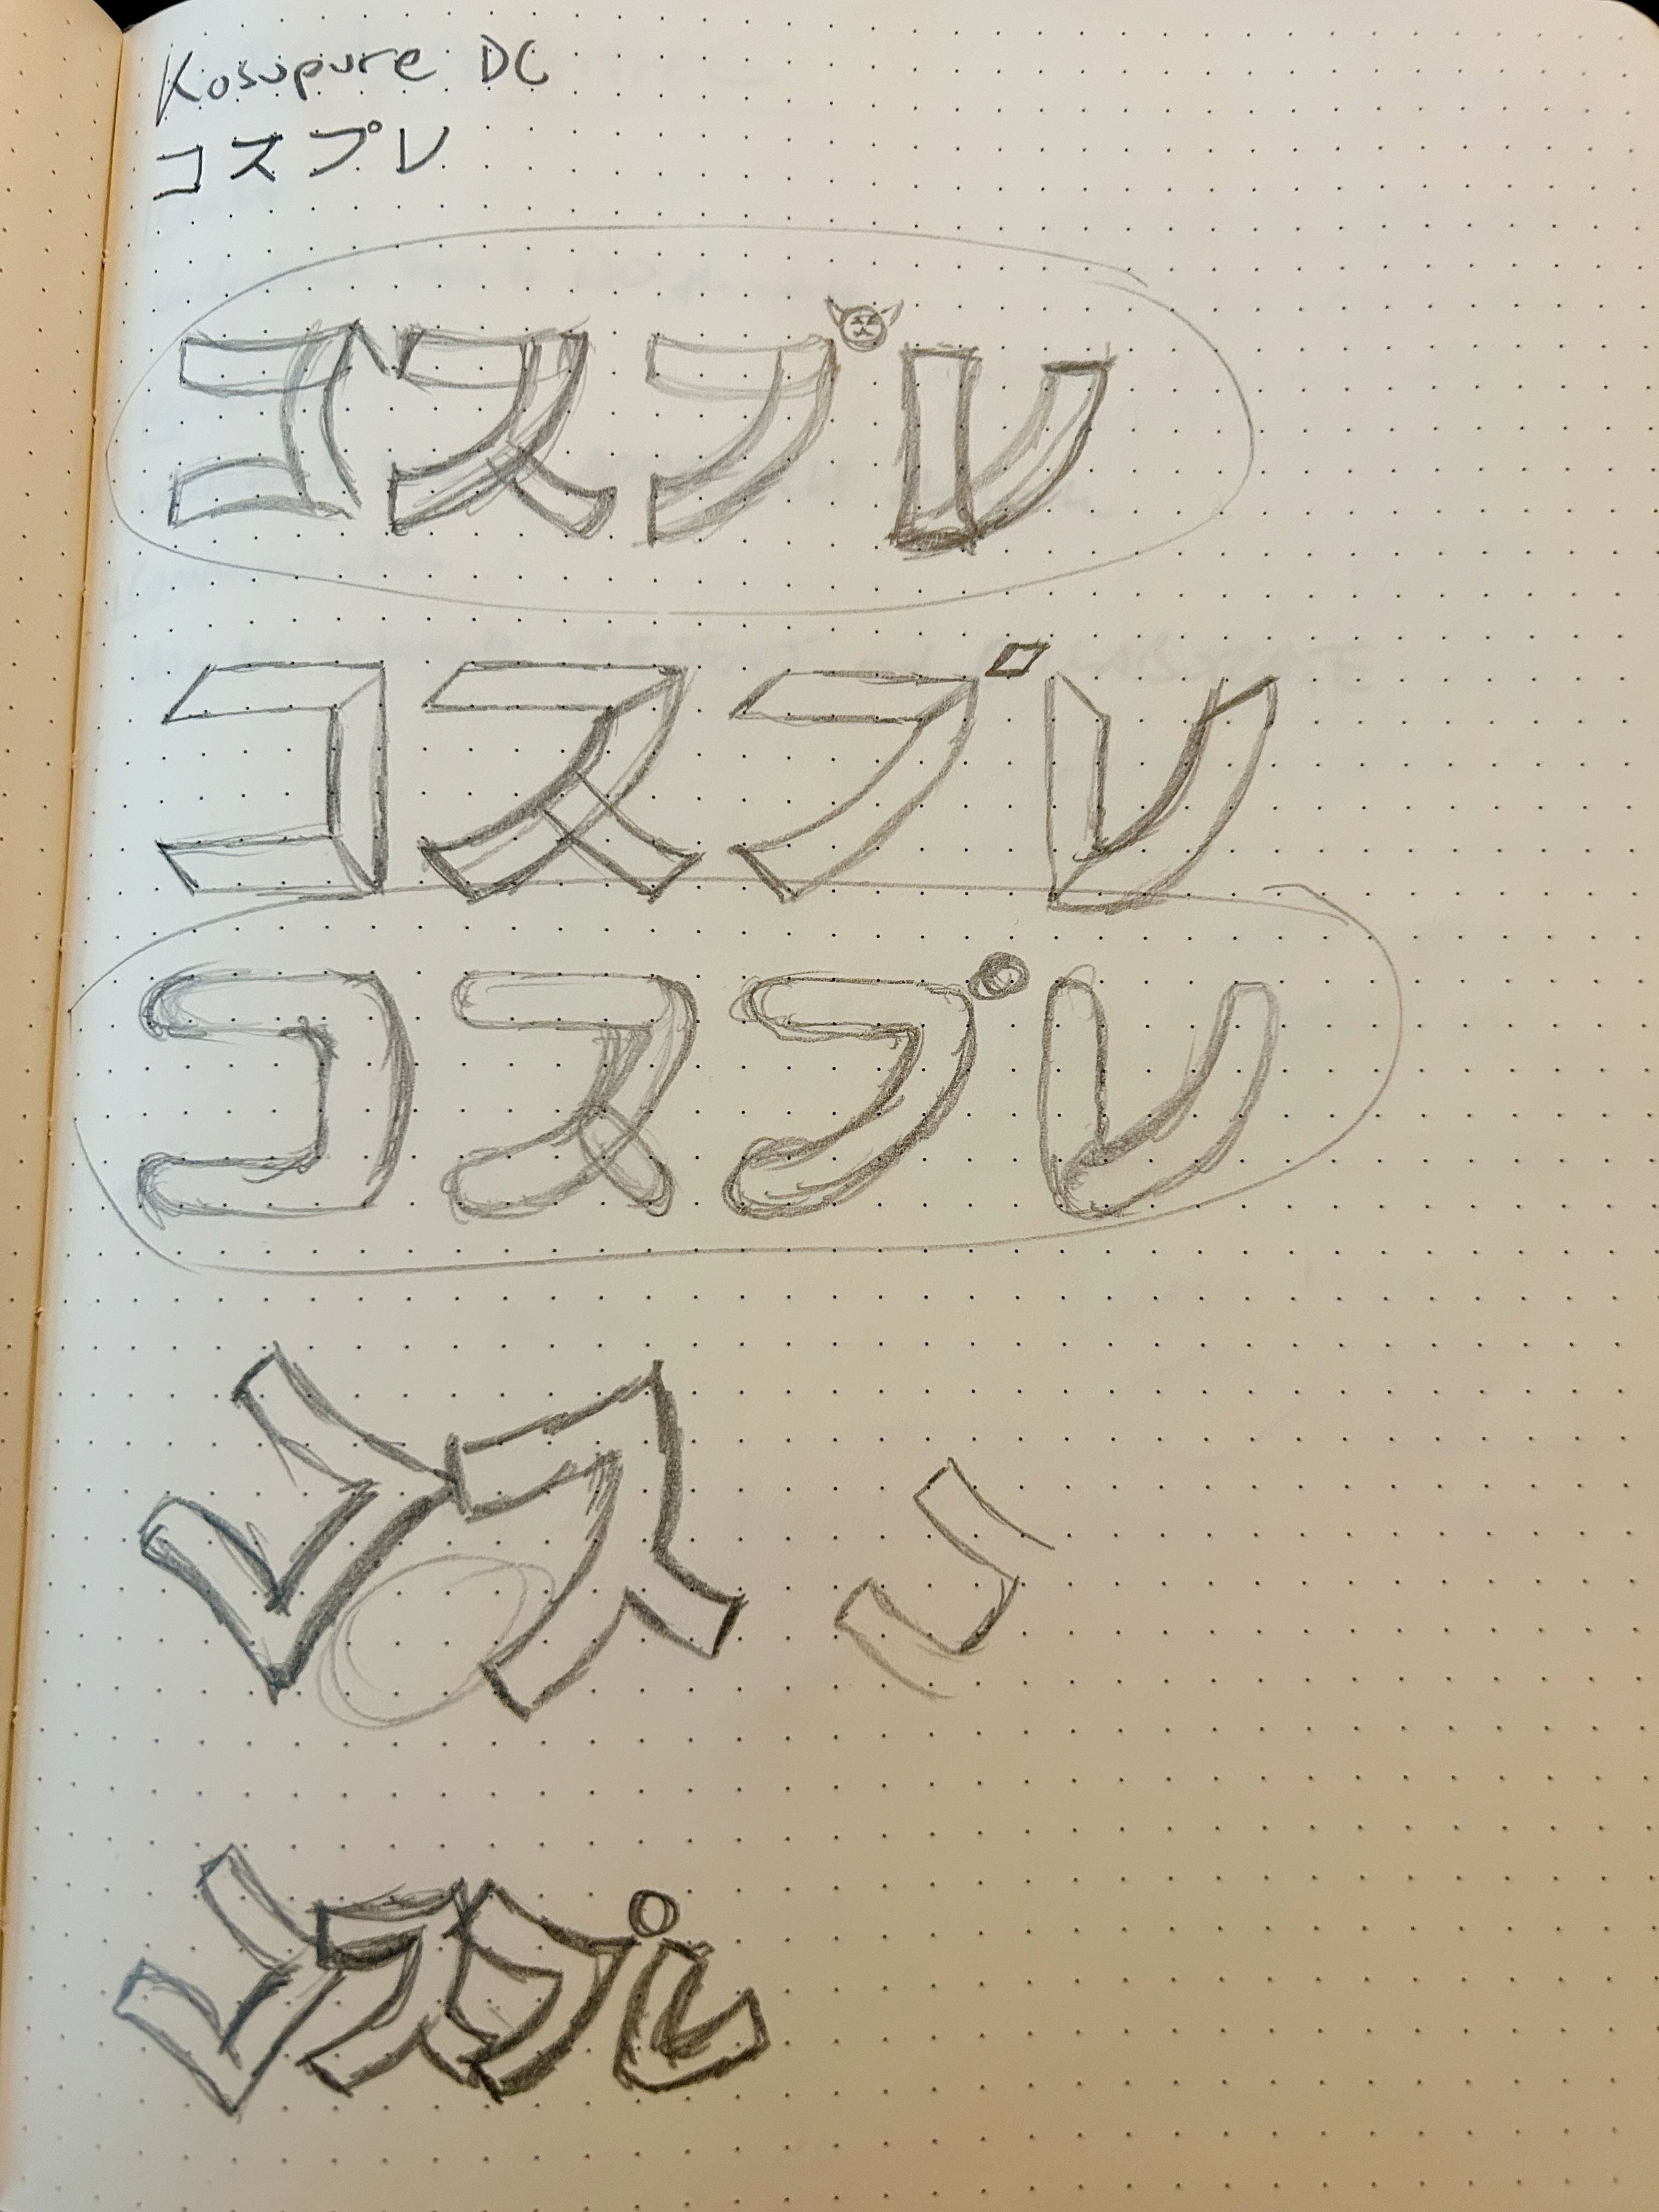 Kosupure DC
コスプレ
コスプレ
コスプレ
コスプレ
コス
コスプレ